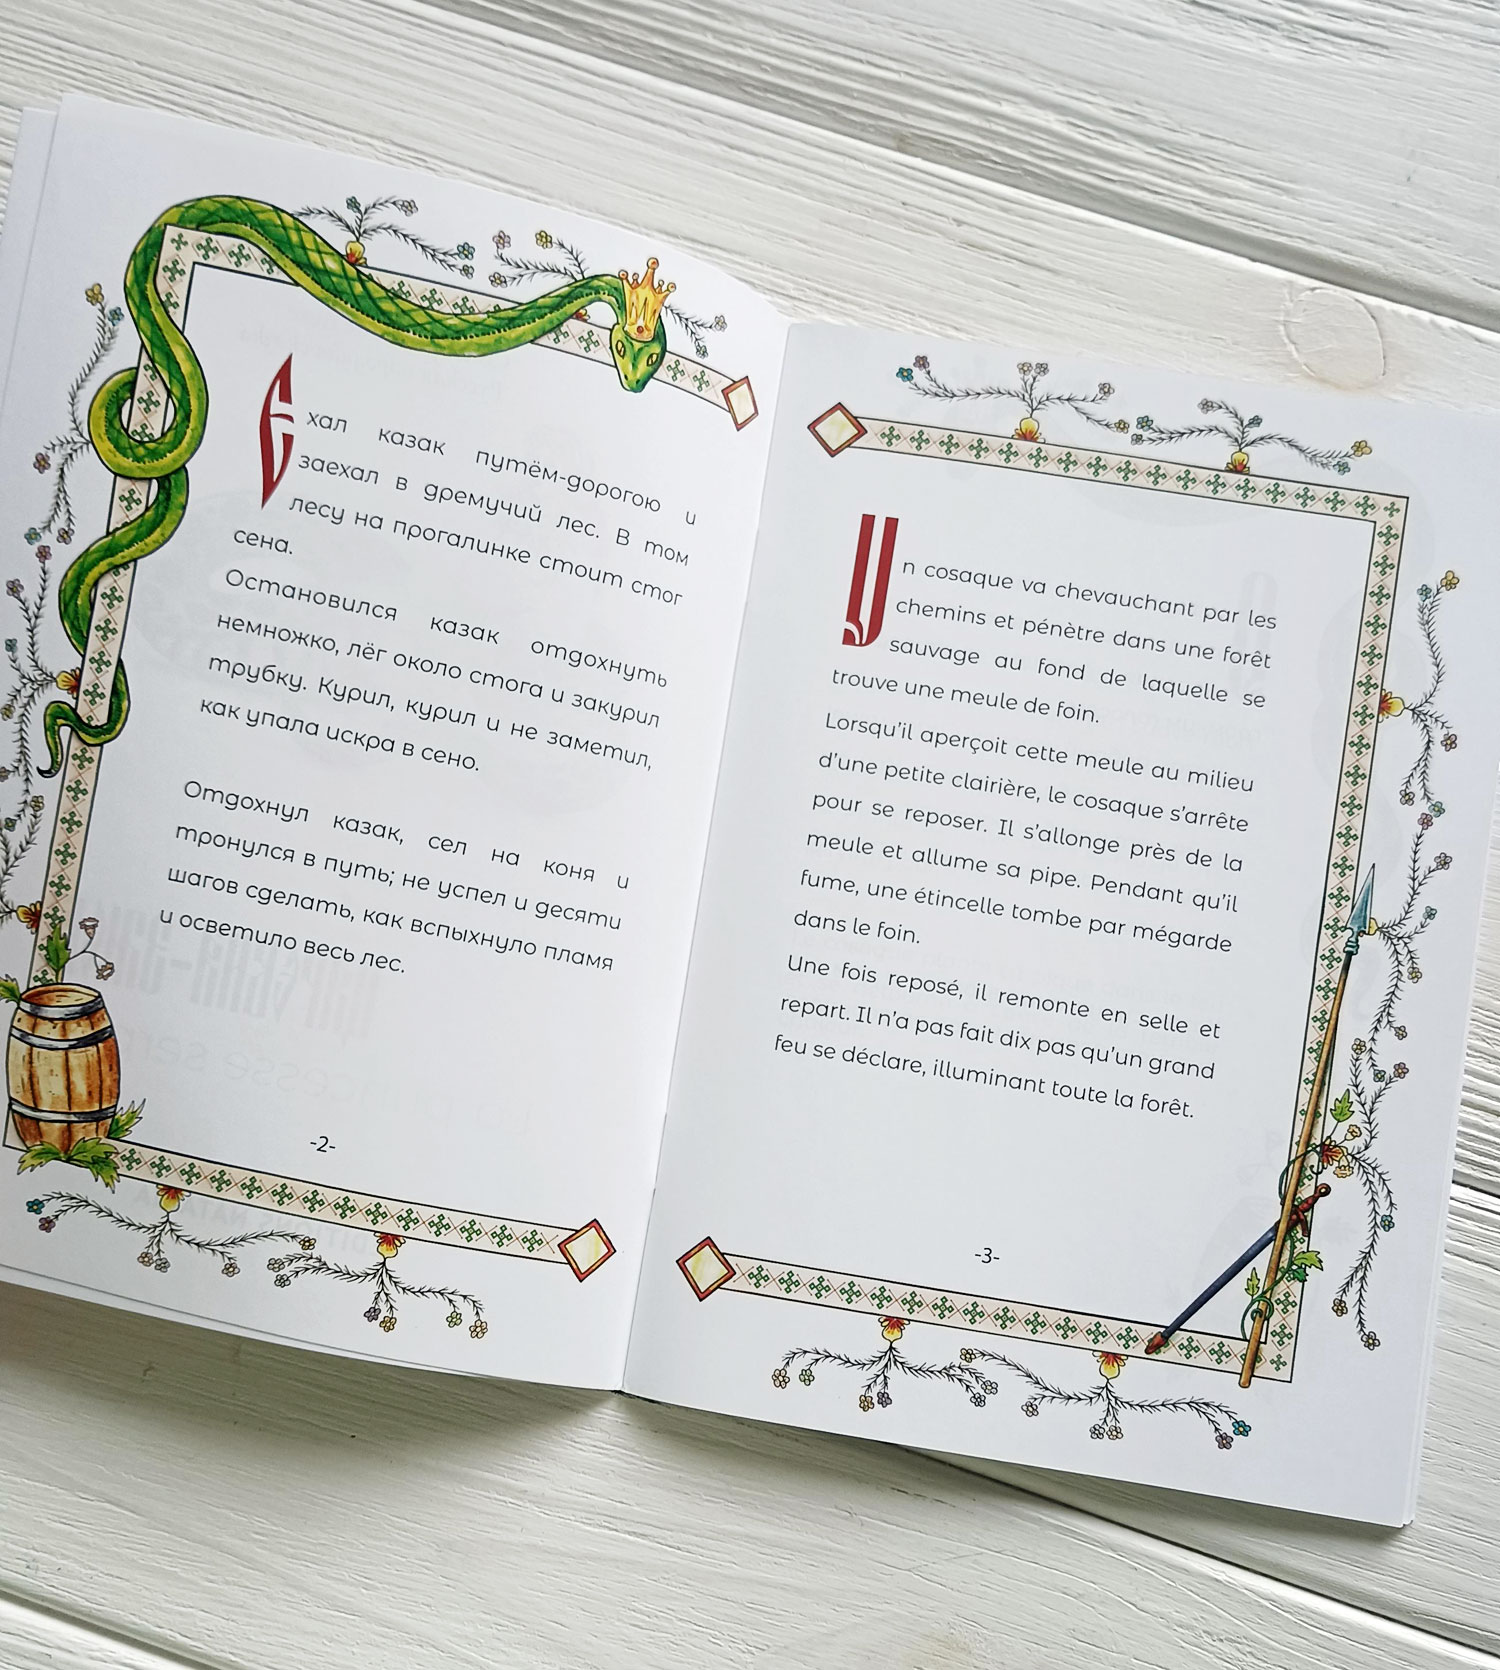 Ехал казак путём-дорогою и
заехал в дремучий лес. В том
лесу на прогалинке стоит стог
сена.
Остановился казак отдохнуть
немножко, лёг около стога и закурил
трубку. Курил, курил и не заметил,
как упала искра в сено.
Отдохнул казак, сел на коня и
тронулся в путь; не успел и десяти
шагов сделать, как вспыхнуло пламя
и осветило весь лес.
-2-
Un cosaque va chevauchant par les
chemins et pénètre dans une forêt
sauvage au fond de laquelle se
trouve une meule de foin.
Lorsqu'il aperçoit cette meule au milieu
d'une petite clairière, le cosaque s'arrête
pour se reposer. Il s'allonge près de la
meule et allume sa pipe. Pendant qu'il
fume, une étincelle tombe par mégarde
dans le foin.
Une fois reposé, il remonte en selle et
repart. Il n'a pas fait dix pas qu'un grand
feu se déclare, illuminant toute la forêt.
-3-